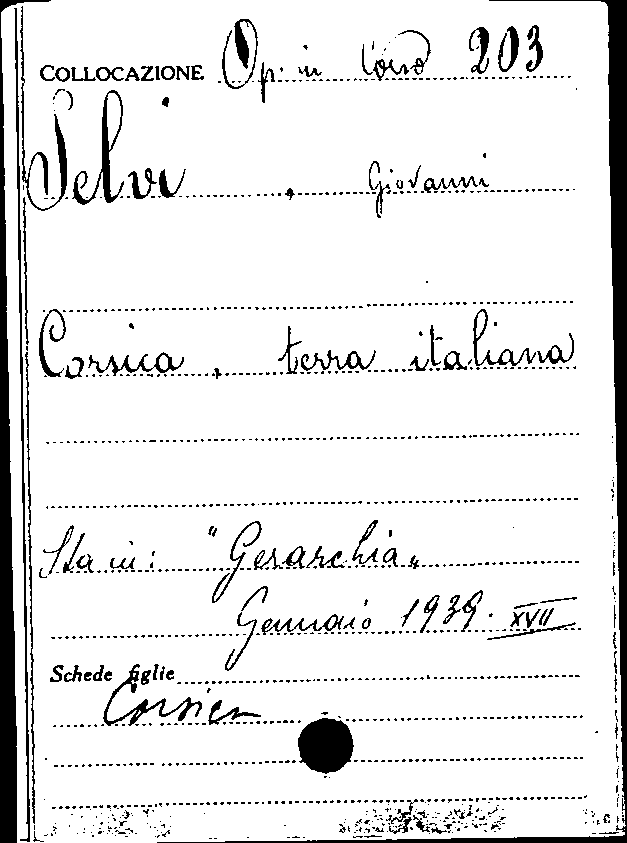 COLLOCAZIONE Op: in Corso 203
Selvi , Giovanni
Corsica , terra italiana
Sta in: "Gerarchia"
Gennaio 1939. XVII
Schede figlie
Corsica